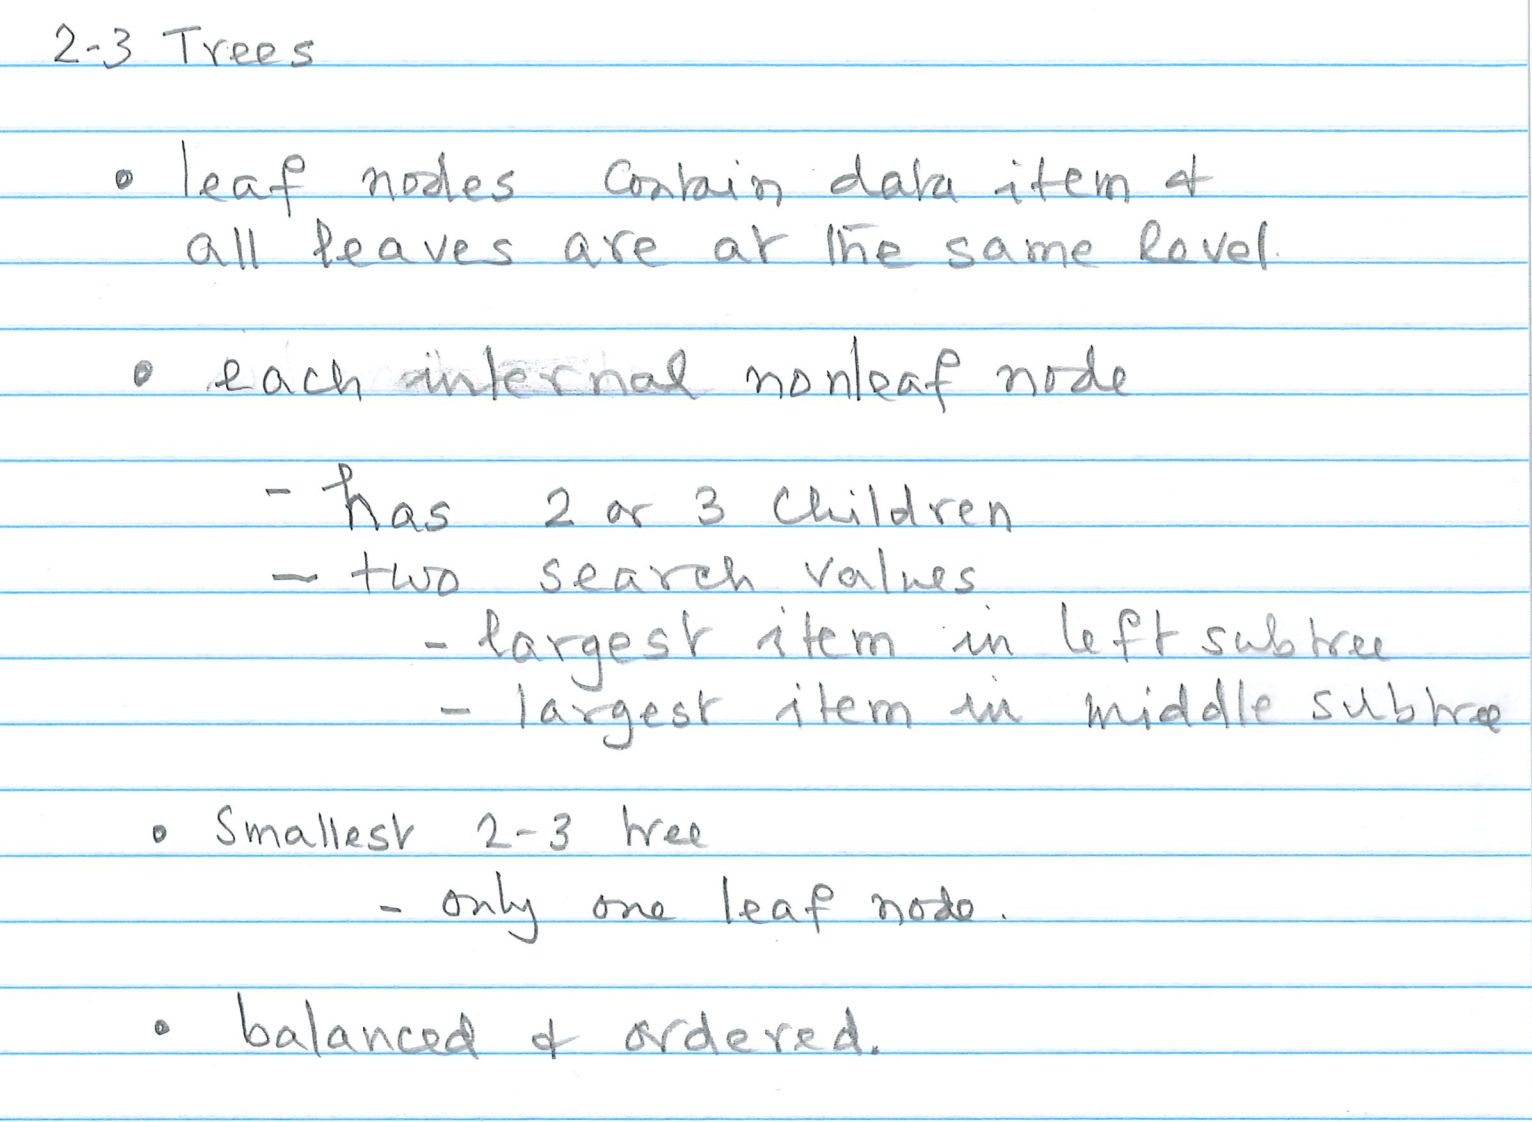 2-3 Trees
• leaf nodes contain data item &
all leaves are at the same level.
• each internal nonleaf node
- has 2 or 3 children
- two search values
- largest item in left subtree
- largest item in middle subtree
• Smallest 2-3 tree
- only one leaf node.
• balanced & ordered.